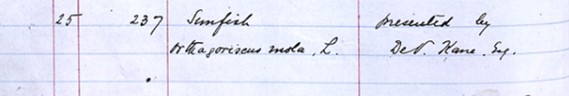 25 237 Sunfish presented by
Orthagoriscus mola, L. De V. Kane. Esq.